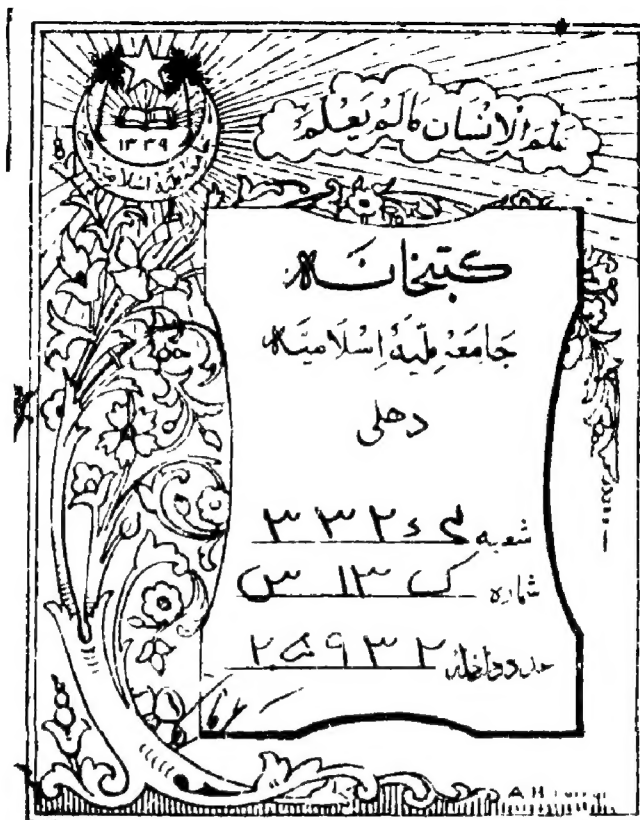 عَلَّمَ الْإِنْسَانَ مَالَمْ يَعْلَمْ
۱۳۳۹
كتبخانه
جامعهٔ ملیهٔ اسلامیه
دهلی
شعبه ۳۳۲
شماره ک ۱۳ س
عدد داخله ۲۵۹۳۲
A.H.